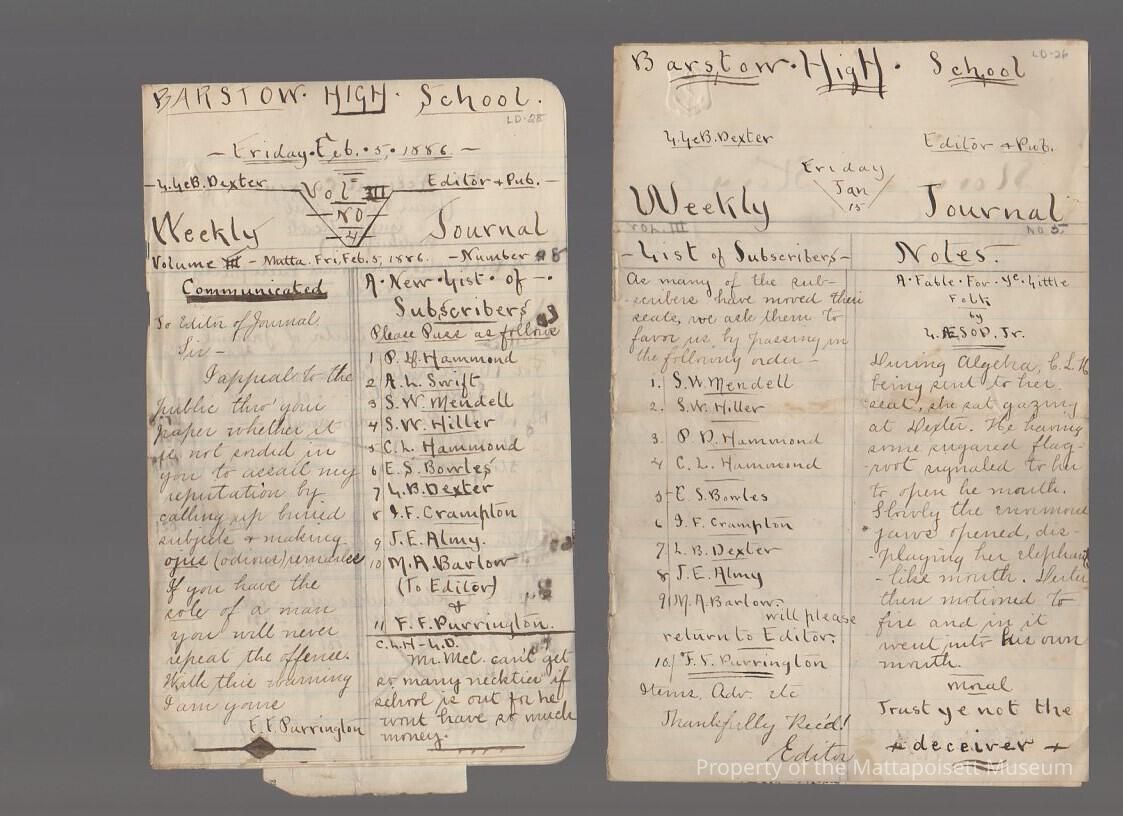 BARSTOW. HIGH. School.
LD-28
- Friday. Feb. 5, 1886 -
L. LeB. Dexter Vol III Editor + Pub. -
NO
4
Weekly Journal
Volume III - Matta. Fri, Feb. 5, 1886. - Number
Communicated
To Editor of Journal.
Sir -
I appeal to the
public thro' your
paper whether it
is not sordid in
you to assail my
reputation by
calling up buried
subjects + making
ojus (odious) remarks
If you have the
sole of a man
you will never
repeat the offence.
With this warning
I am yours
F. F. Purrington
A. New. List of -.
Subscribers
Please Pass as follows
1 P. D. Hammond
2 A. L. Swift
3 S. W. Mendell
4 S. W. Hiller
5 C. L. Hammond
6 E. S. Bowles
7 L. B. Dexter
8 I. F. Crampton
9 J. E. Almy.
10 M. A. Barlow
(To Editor)
+
11 F. F. Purrington.
C. L. H - L. D.
Mr. McC. can't get
so many neckties if
school is out for he
wont have so much
money.
Barstow. High. School
LD-26
L. LeB. Dexter Editor + Pub.
Friday
Jan
15
Weekly Journal
VOL. III NO 5.
- List of Subscribers -
As many of the sub-
-scribers have moved their
seats, we ask them to
favor us by passing in
the following order -
1. S. W. Mendell
2. S. W. Hiller
3. P. D. Hammond
4 C. L. Hammond
5 E. S. Bowles
6 I. F. Crampton
7 L. B. Dexter
8 J. E. Almy
9 M. A. Barlow.
will please
return to Editor.
10 F. F. Purrington
Items, Adv. etc
Thankfully Rec'd!
Editor
Notes.
A. Fable. For. Ye. Little
Folk
by
L. ÆSOP. Jr.
During Algebra, C. L. H
being sent to her
seat, she sat gazing
at Dexter. He having
some sugared flag-
-root signaled to her
to open he mouth.
Slowly the enormous
jaws opened, dis-
-playing her elephant
-like mouth. Dexter
then motioned to
fire and in it
went into his own
mouth.
moral
Trust ye not the
+ deceiver +
Property of the Mattapoisett Museum